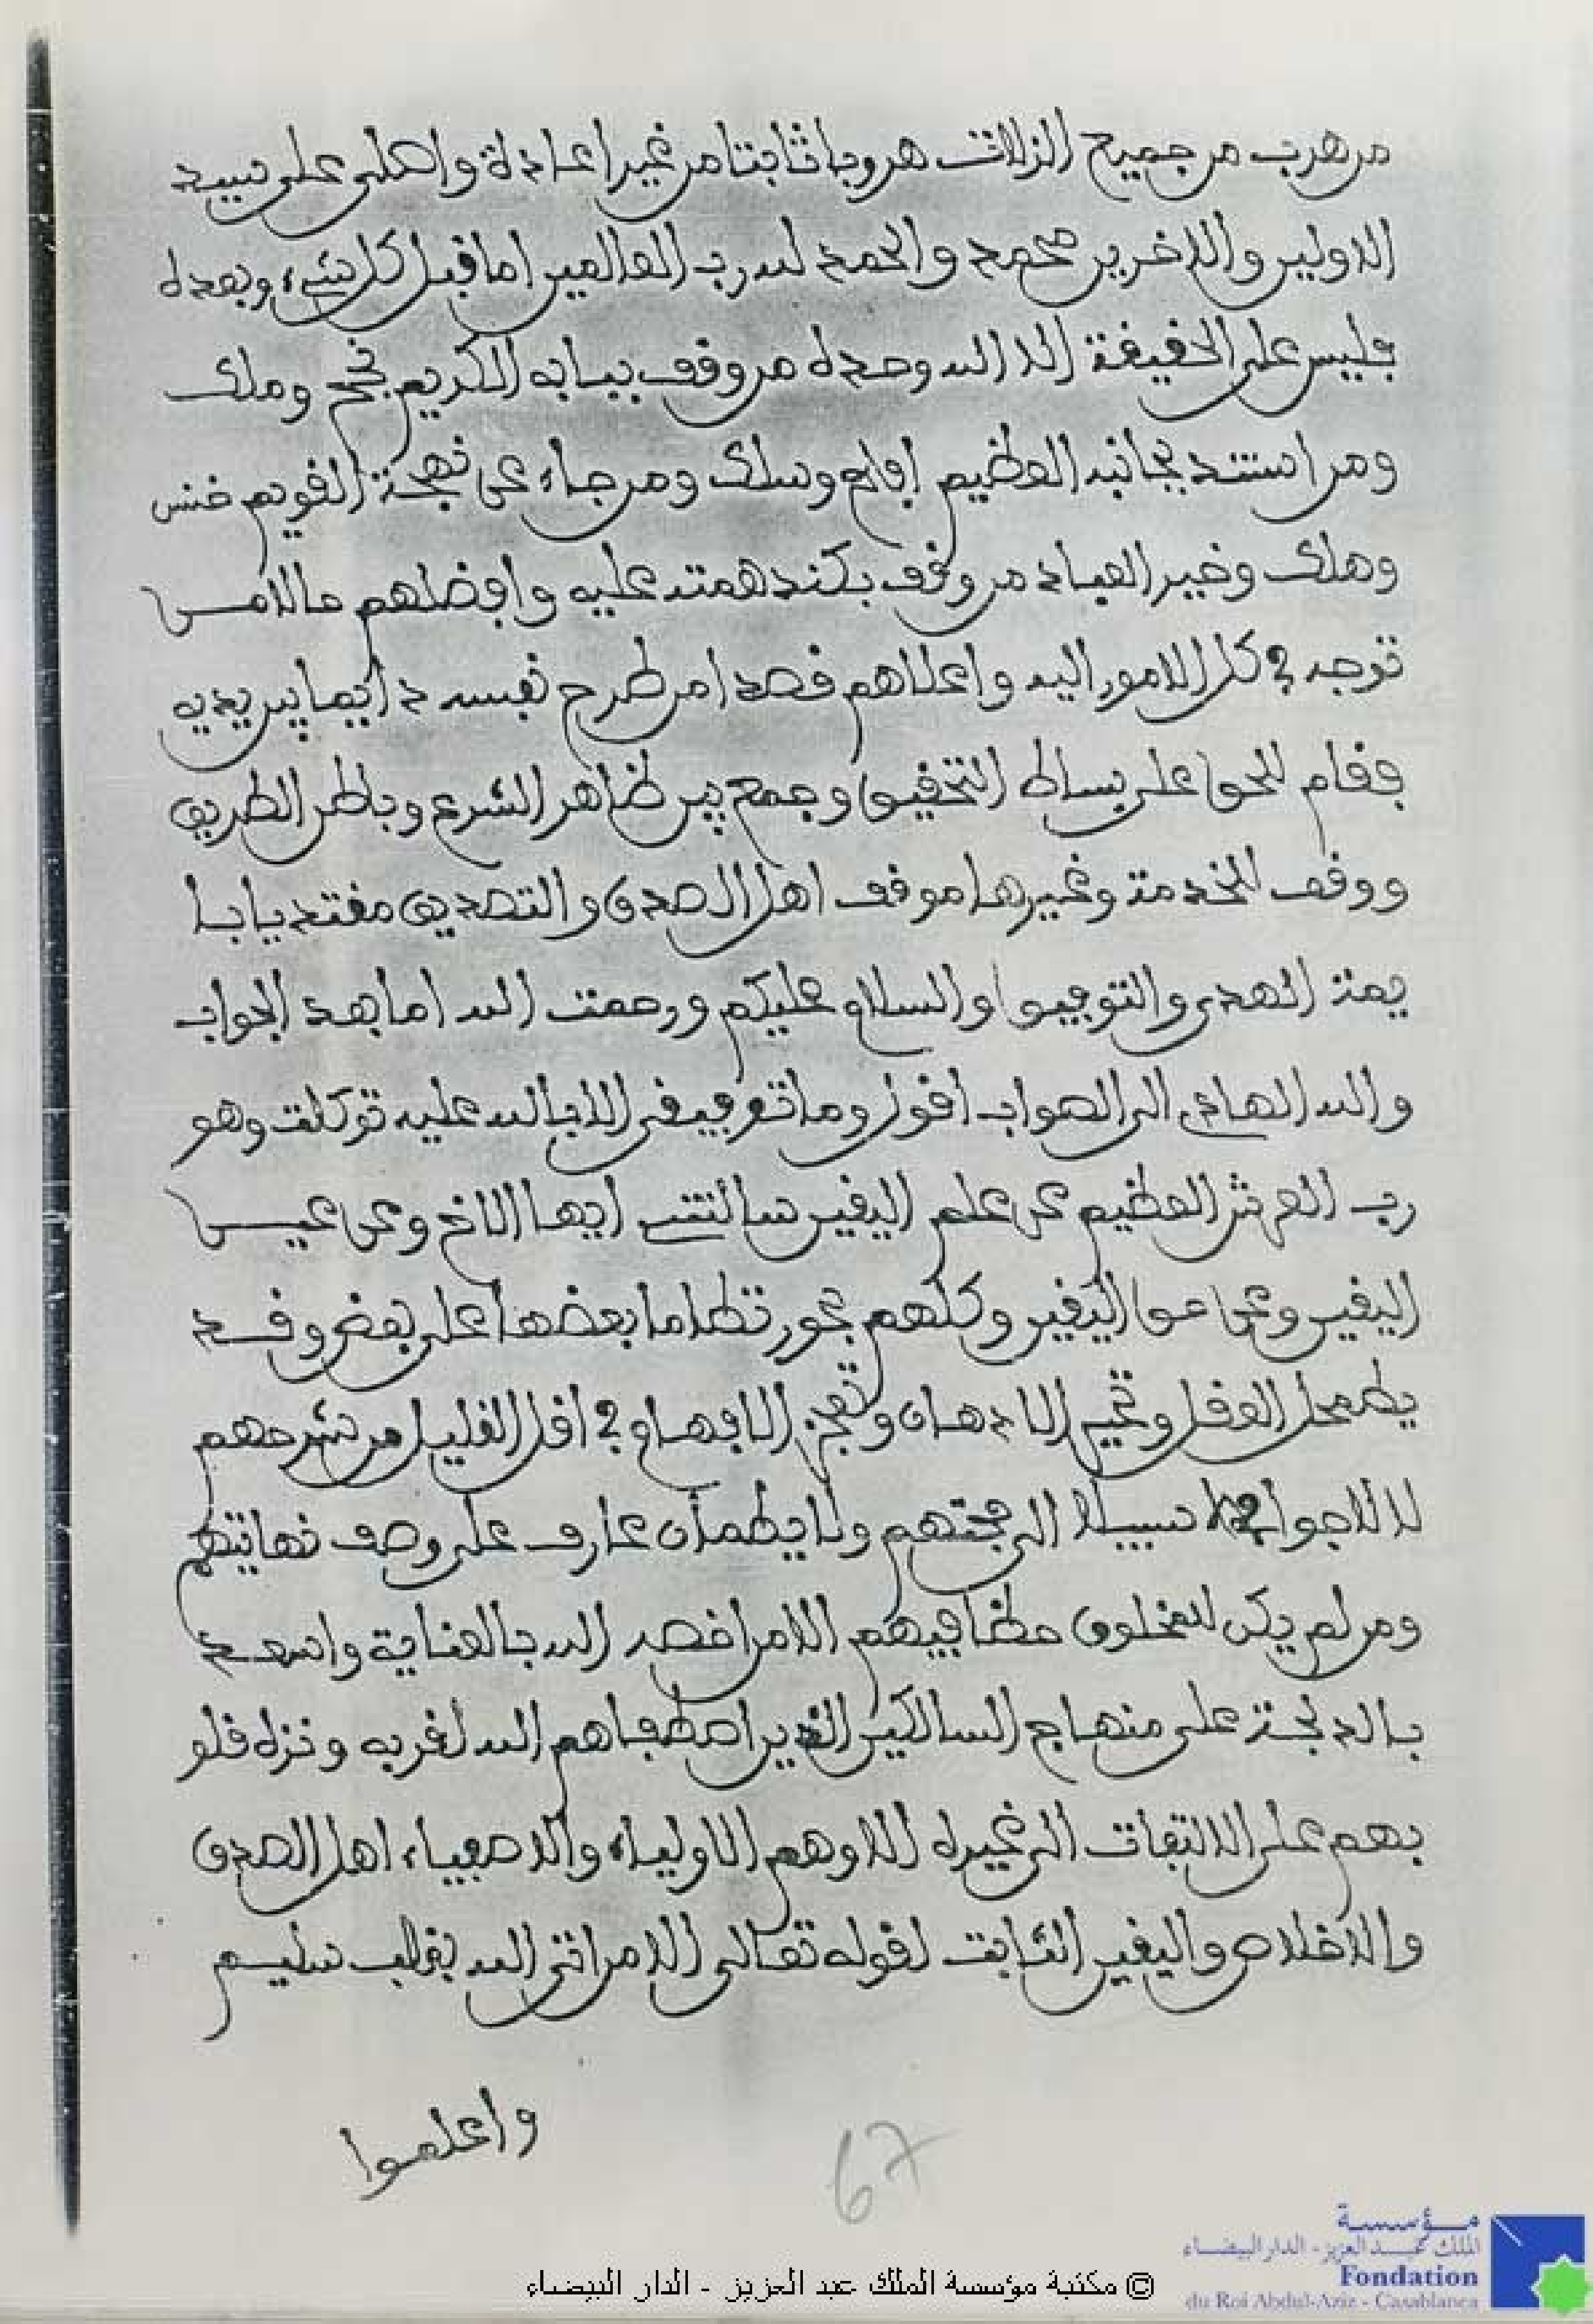 من هرب من جميع الزلات هروبا ثابتا من غير اعادة واصلى على سيد
الاولين والاخرين محمد والحمد لله رب العالمين اما قبل كل شيء وبعده
فليس على الحقيقة الا الله وحده من وقف ببابه الكريم نجح وملك
ومن استند بجانبه العظيم افلح وسلك ومن جاء عن نهجة القويم خنس
وهلك وخير العباد من وقف بكنه همته عليه وافضلهم حالا من
توجه في كل الامور اليه واعلاهم قصدا من طرح نفسه دايما بين يديه
فقام للحق على بساط التحقيق وجمع بين ظاهر الشرع وباطن الطريق
ووقف للخدمة وغيرها موقف اهل الصدق والتصديق مقتديا با
يمة الهدى والتوفيق والسلام عليكم ورحمت الله اما بعد الجواب
والله الهادي الى الصواب اقول وما توفيقي الا بالله عليه توكلت وهو
رب العرش العظيم عن علم اليقين سالتني ايها الاخ وعن عيـــن
اليقين وعن حق اليقين وكلهم بحور تطاما بعضها على بعض وقــد
يضمحل العقل وتحير الاذهان وتعجز الافهام في اقل القليل من شرحهم
لا سبيلا الى محجتهم ولا يطمأن عارف على وصف نهايتهم
ومن لم يكن للمخلوق حظا فيهم الا من اخصه الله بالعناية واسعــد
بالدلجة على منهاج السالكين الذين اصطفاهم الله لقربه ونزه قلو
بهم على الالتفات الى غيره الا وهم الاولياء والاصفياء اهل الصدق
والاخلاص واليقين الثابت لقوله تعالى الا من اتى الله بقلب سليــم
واعلمــوا
67
مؤسسة
الملك عبد العزيز - الدار البيضاء
Fondation
du Roi Abdul-Aziz - Casablanca
© مكتبة مؤسسة الملك عبد العزيز - الدار البيضاء